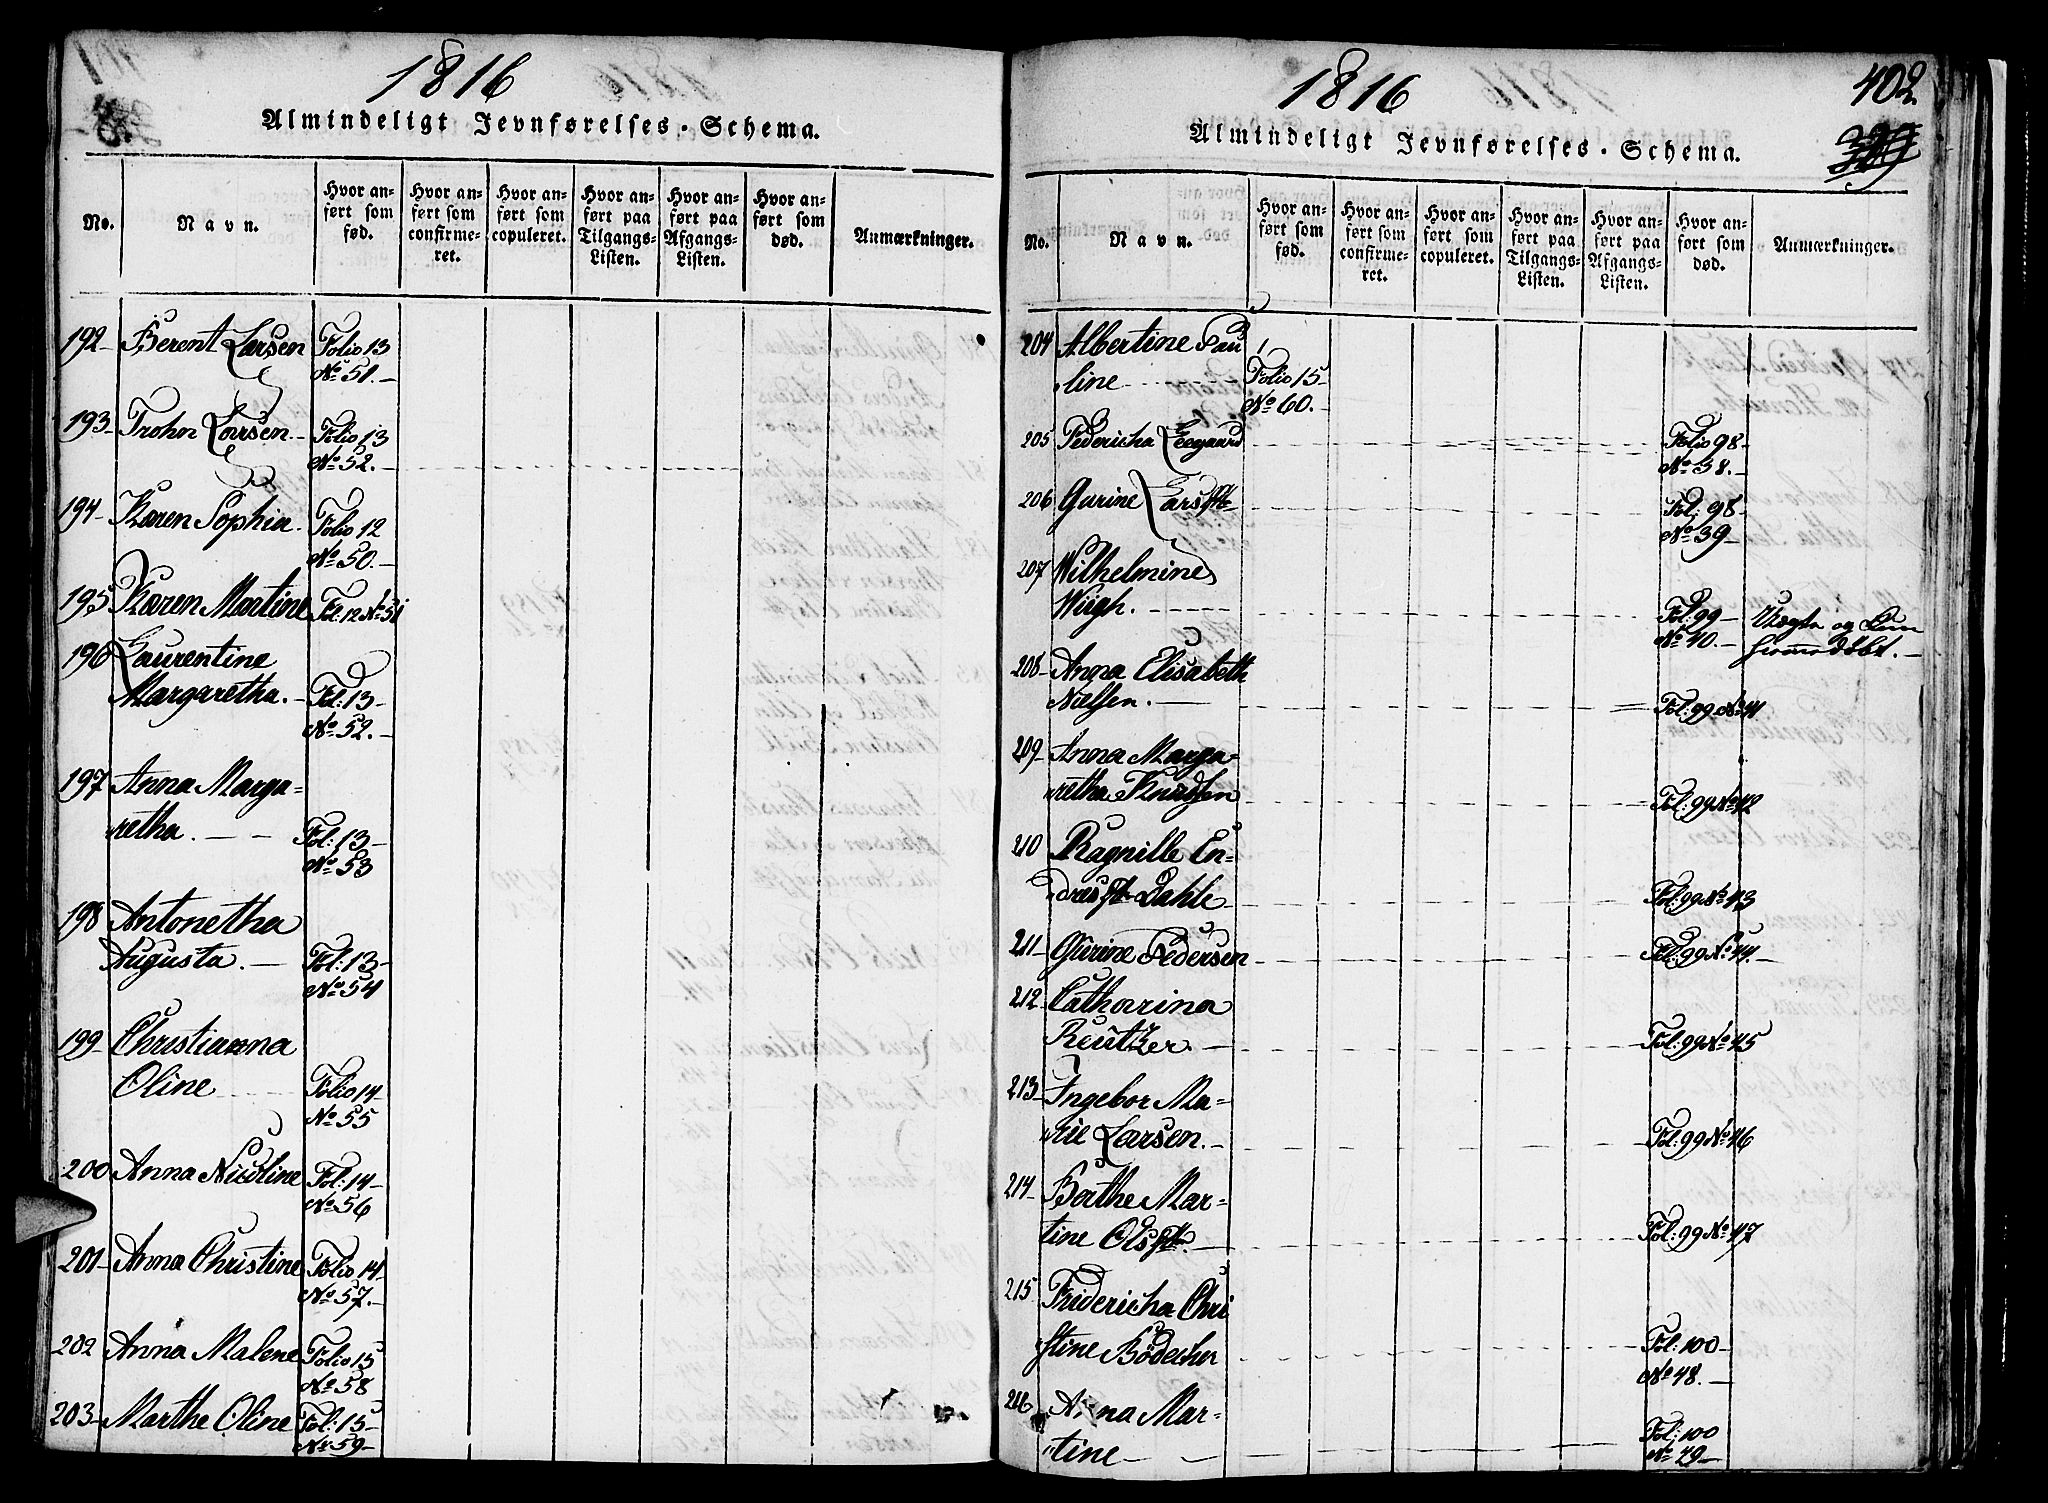 1816
Almindeligt Jevnførelses-Schema.
No.
Navn.
Hvor anført som fød.
Hvor anført som confirmeret.
Hvor anført som copuleret.
Hvor anført paa Tilgangs-Listen.
Hvor anført paa Afgangs-Listen.
Hvor anført som død.
Anmærkninger.
192- Berent Larsen Folio 13
No 51.-
193- Trohn Larsen- Folio 13
No 52.-
194- Karen Sophia. Folio 12
No 50.-
195 Karen Martine Fol: 12 No 51
196 Laurentine
Margaretha.- Fol: 13-
No 52.-
197 Anna Marga=
retha.-- Fol: 13-
No 53
198 Antonetha
Augusta.- Fol: 13-
No 54
199- Christianna
Oline Folio 14-
No 55
200 Anna Nicoline Fol: 14-
No 56
201- Anna Christine Folio 14-
No 57.-
202 Anna Malene Folio 15
No 58
203- Marthe Oline Fol: 15-
No 59-
1816
402
389
Almindeligt Jevnførelses-Schema.
No.
Navn.
Hvor anført som fød.
Hvor anført som confirmeret.
Hvor anført som copuleret.
Hvor anført paa Tilgangs-Listen.
Hvor anført paa Afgangs-Listen.
Hvor anført som død.
Anmærkninger.
204 Albertine Pau
line Folio 15-
No 60.-
205 Federicha Folio 98-
No 38.-
206 Gurine Larsdtr Fol: 98-
No 39-
207 Wilhelmine
Wiigh. Fol: 99- og
No 40.-
208- Anna Elisabeth
Nielsen.- Fol: 99 No 41
209- Anna Marga-
retha Knudsen Fol: 99 No 42
210 Ragnille En=
dresdtr Dahle Fol: 99 No 43
211- Gurine Pedersen Fol: 99 No 44.-
212- Catharina
Reutzer.- Fol: 99 No 45
213- Ingebor Ma-
rie Larsen.- Fol: 99 No 46
214- Berthe Mar-
tine Olsdtr.- Fol: 99 No 47
215 Fridericha Chri
stine Bödecher Fol: 100-
No 48.-
216- Anna Mar-
tine- Fol: 100
No 49-